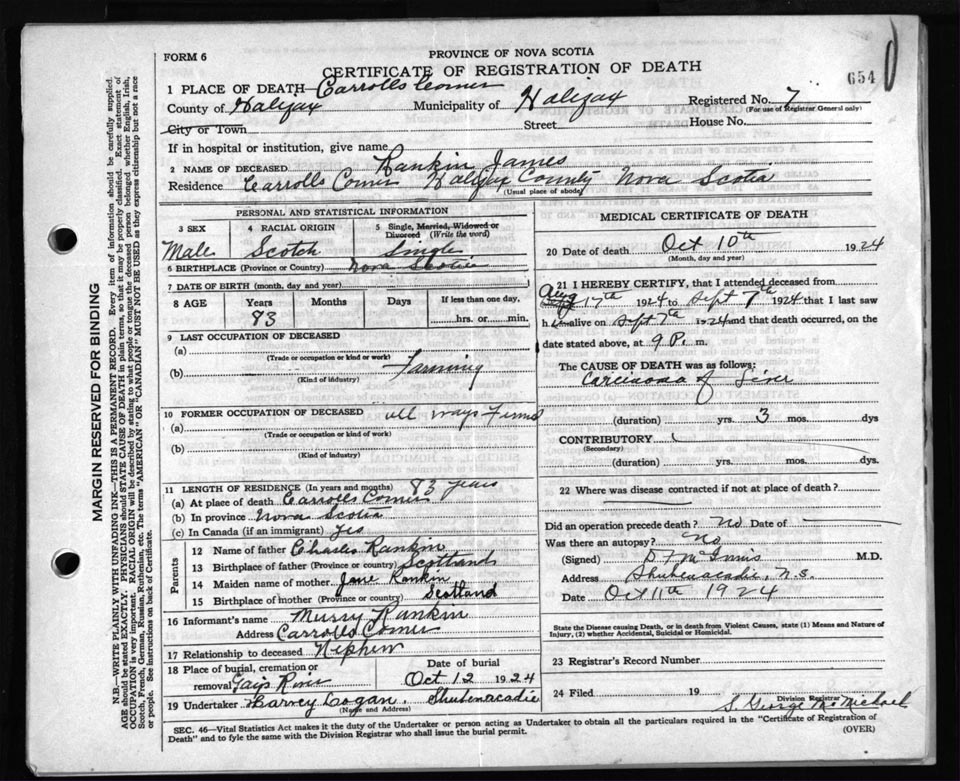 FORM 6
PROVINCE OF NOVA SCOTIA
CERTIFICATE OF REGISTRATION OF DEATH
654
1 PLACE OF DEATH Carrolls Corner
County of Halifax Municipality of Halifax Registered No. 7
(For use of Registrar General only)
City or Town Street House No.
If in hospital or institution, give name
2 NAME OF DECEASED Rankin James
Residence Carrolls Corner Halifax County Nova Scotia
(Usual place of abode)
PERSONAL AND STATISTICAL INFORMATION
3 SEX 4 RACIAL ORIGIN 5 Single, Married, Widowed or Divorced (Write the word)
Male Scotch Single
6 BIRTHPLACE (Province or Country) Nova Scotia
7 DATE OF BIRTH (month, day and year)
8 AGE Years Months Days If less than one day,
83 hrs. or min.
9 LAST OCCUPATION OF DECEASED
(a)
(Trade or occupation or kind of work)
(b) Farming
(Kind of industry)
10 FORMER OCCUPATION OF DECEASED all ways
(a)
(Trade or occupation or kind of work)
(b)
(Kind of industry)
11 LENGTH OF RESIDENCE (In years and months) 83 years
(a) At place of death Carrolls Corner
(b) In province Nova Scotia
(c) In Canada (if an immigrant) Yes
Parents
12 Name of father Charles Rankin
13 Birthplace of father (Province or Country) Scotland
14 Maiden name of mother Jane Rankin
15 Birthplace of mother (Province or country) Scotland
16 Informant's name Murry Rankin
Address Carrolls Corner
17 Relationship to deceased Nephew
18 Place of burial, cremation or removal Date of burial
Oct 12 1924
19 Undertaker Harvey Logan. Shubenacadie
(Name and Address)
MEDICAL CERTIFICATE OF DEATH
20 Date of death Oct 10th 1924
(Month, day and year)
21 I HEREBY CERTIFY, that I attended deceased from
Aug 17th 1924 to Sept 7th 1924 that I last saw
him alive on Sept 7th 1924 and that death occurred, on
date stated above, at 9 P. m.
The CAUSE OF DEATH was as follows:
Carcinoma of Liver
(duration) yrs. 3 mos. dys
CONTRIBUTORY
(Secondary)
(duration) yrs. mos. dys.
22 Where was disease contracted if not at place of death?
Did an operation precede death? No Date of
Was there an autopsy? No
(Signed) D F McInnis M.D.
Address Shubenacadie, N.S.
Date Oct 11th 1924
State the Disease causing Death, or in death from Violent Causes, state (1) Means and Nature of
Injury, (2) whether Accidental, Suicidal or Homicidal.
23 Registrar's Record Number
24 Filed 19
Division Registrar
S. George McMichael
SEC. 46—Vital Statistics Act makes it the duty of the Undertaker or person acting as Undertaker to obtain all the particulars required in the "Certificate of Registration of
Death" and to fyle the same with the Division Registrar who shall issue the burial permit.
(OVER)
MARGIN RESERVED FOR BINDING
N.B.—WRITE PLAINLY WITH UNFADING INK—THIS IS A PERMANENT RECORD. Every item of information should be carefully supplied.
AGE should be stated EXACTLY. PHYSICIANS should STATE CAUSE OF DEATH in plain terms, so that it may be properly classified. Exact statement of
OCCUPATION is very important. RACIAL ORIGIN will be described by stating to what people or tongue the deceased person belonged whether English, Irish,
Scotch, French, German, Russian, Ruthenian, etc. The terms "AMERICAN" or "CANADIAN" MUST NOT BE USED as they express citizenship but not a race
or people. See instructions on back of Certificate.